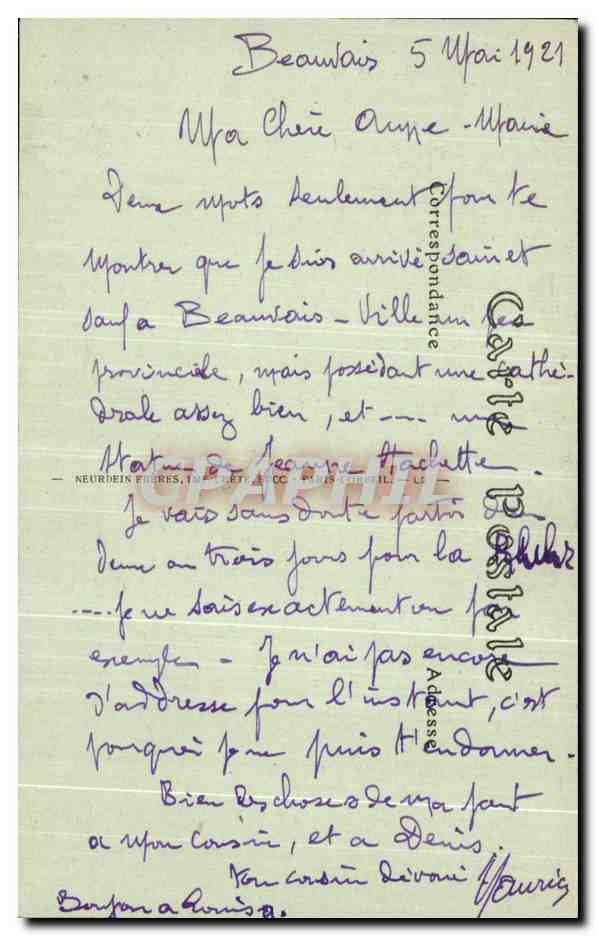 Beauvais 5 Mai 1921
Ma Chère Anne-Marie
Deux mots seulement pour te
Montrer que je suis arrivé sain et
sauf a Beauvais - Ville un peu
provinciale, mais possédant une cathé-
drale assez bien, et ---- une
statue de Jeanne Hachette.
Je vais sans doute partir dans
deux ou trois jours pour la Ruhr
---- Je ne sais exactement ou par
exemple - Je n'ai pas encore
d'addresse pour l'instant, c'est
pourquoi je ne puis t'en donner.
Bien des choses de ma part
a mon cousin, et a Denis.
Ton cousin dévoué Maurice
Bonjour a Louisa.
Carte postale
Correspondance
Adresse
NEURDEIN FRÈRES, IMP. CRÉTÉ, SUCC. - PARIS-CORBEIL.
CPAPHIL